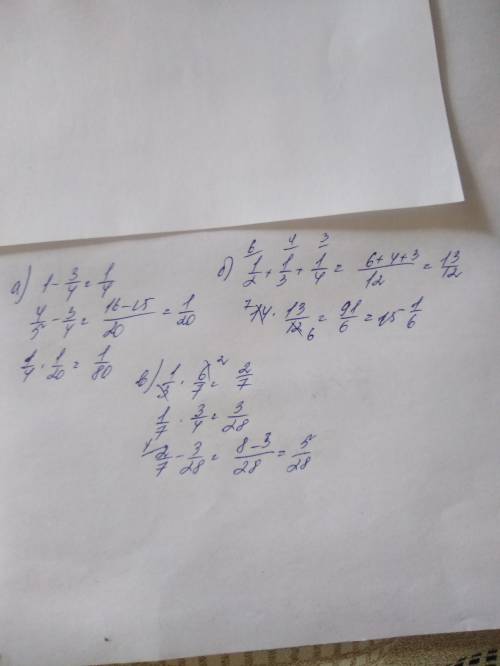 а) 1 - 3/4 = 1/4
4/5 - 3/4 = (16-15)/20 = 1/20
1/4 · 1/20 = 1/80
б) 1/2 + 1/3 + 1/4 = (6+4+3)/12 = 13/12
14 · 13/12 = 91/6 = 15 1/6
в) 1/3 · 6/7 = 2/7
1/7 · 3/4 = 3/28
2/7 - 3/28 = (8-3)/28 = 5/28